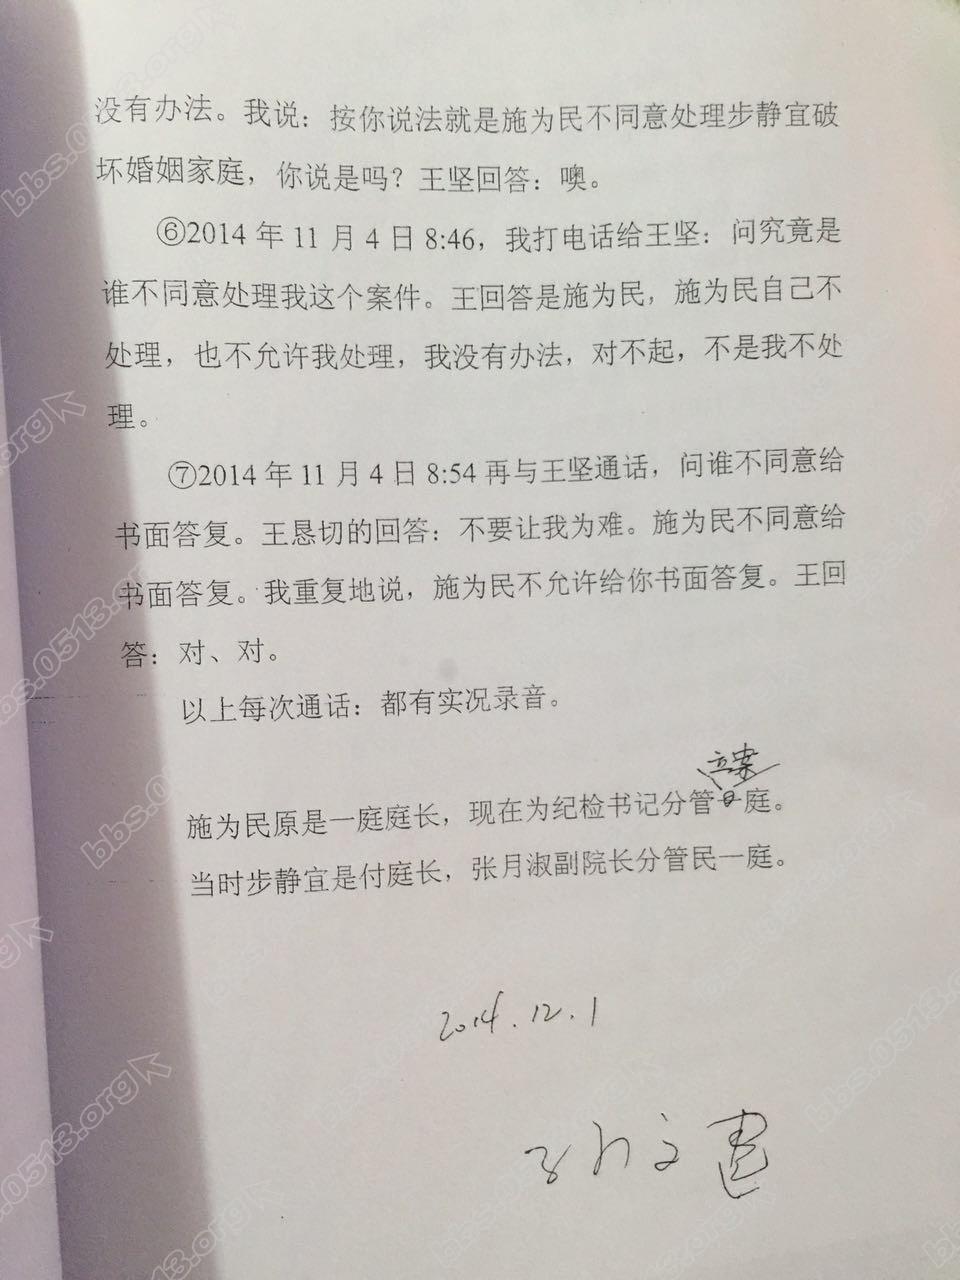 没有办法。我说：按你说法就是施为民不同意处理步静宜破
坏婚姻家庭，你说是吗？王坚回答：噢。
⑥2014 年 11 月 4 日 8:46，我打电话给王坚：问究竟是
谁不同意处理我这个案件。王回答是施为民，施为民自己不
处理，也不允许我处理，我没有办法，对不起，不是我不处
理。
⑦2014 年 11 月 4 日 8:54 再与王坚通话，问谁不同意给
书面答复。王恳切的回答：不要让我为难。施为民不同意给
书面答复。我重复地说，施为民不允许给你书面答复。王回
答：对、对。
以上每次通话：都有实况录音。
立案
施为民原是一庭庭长，现在为纪检书记分管庭。
当时步静宜是付庭长，张月淑副院长分管民一庭。
2014.12.1
bbs.0513.org